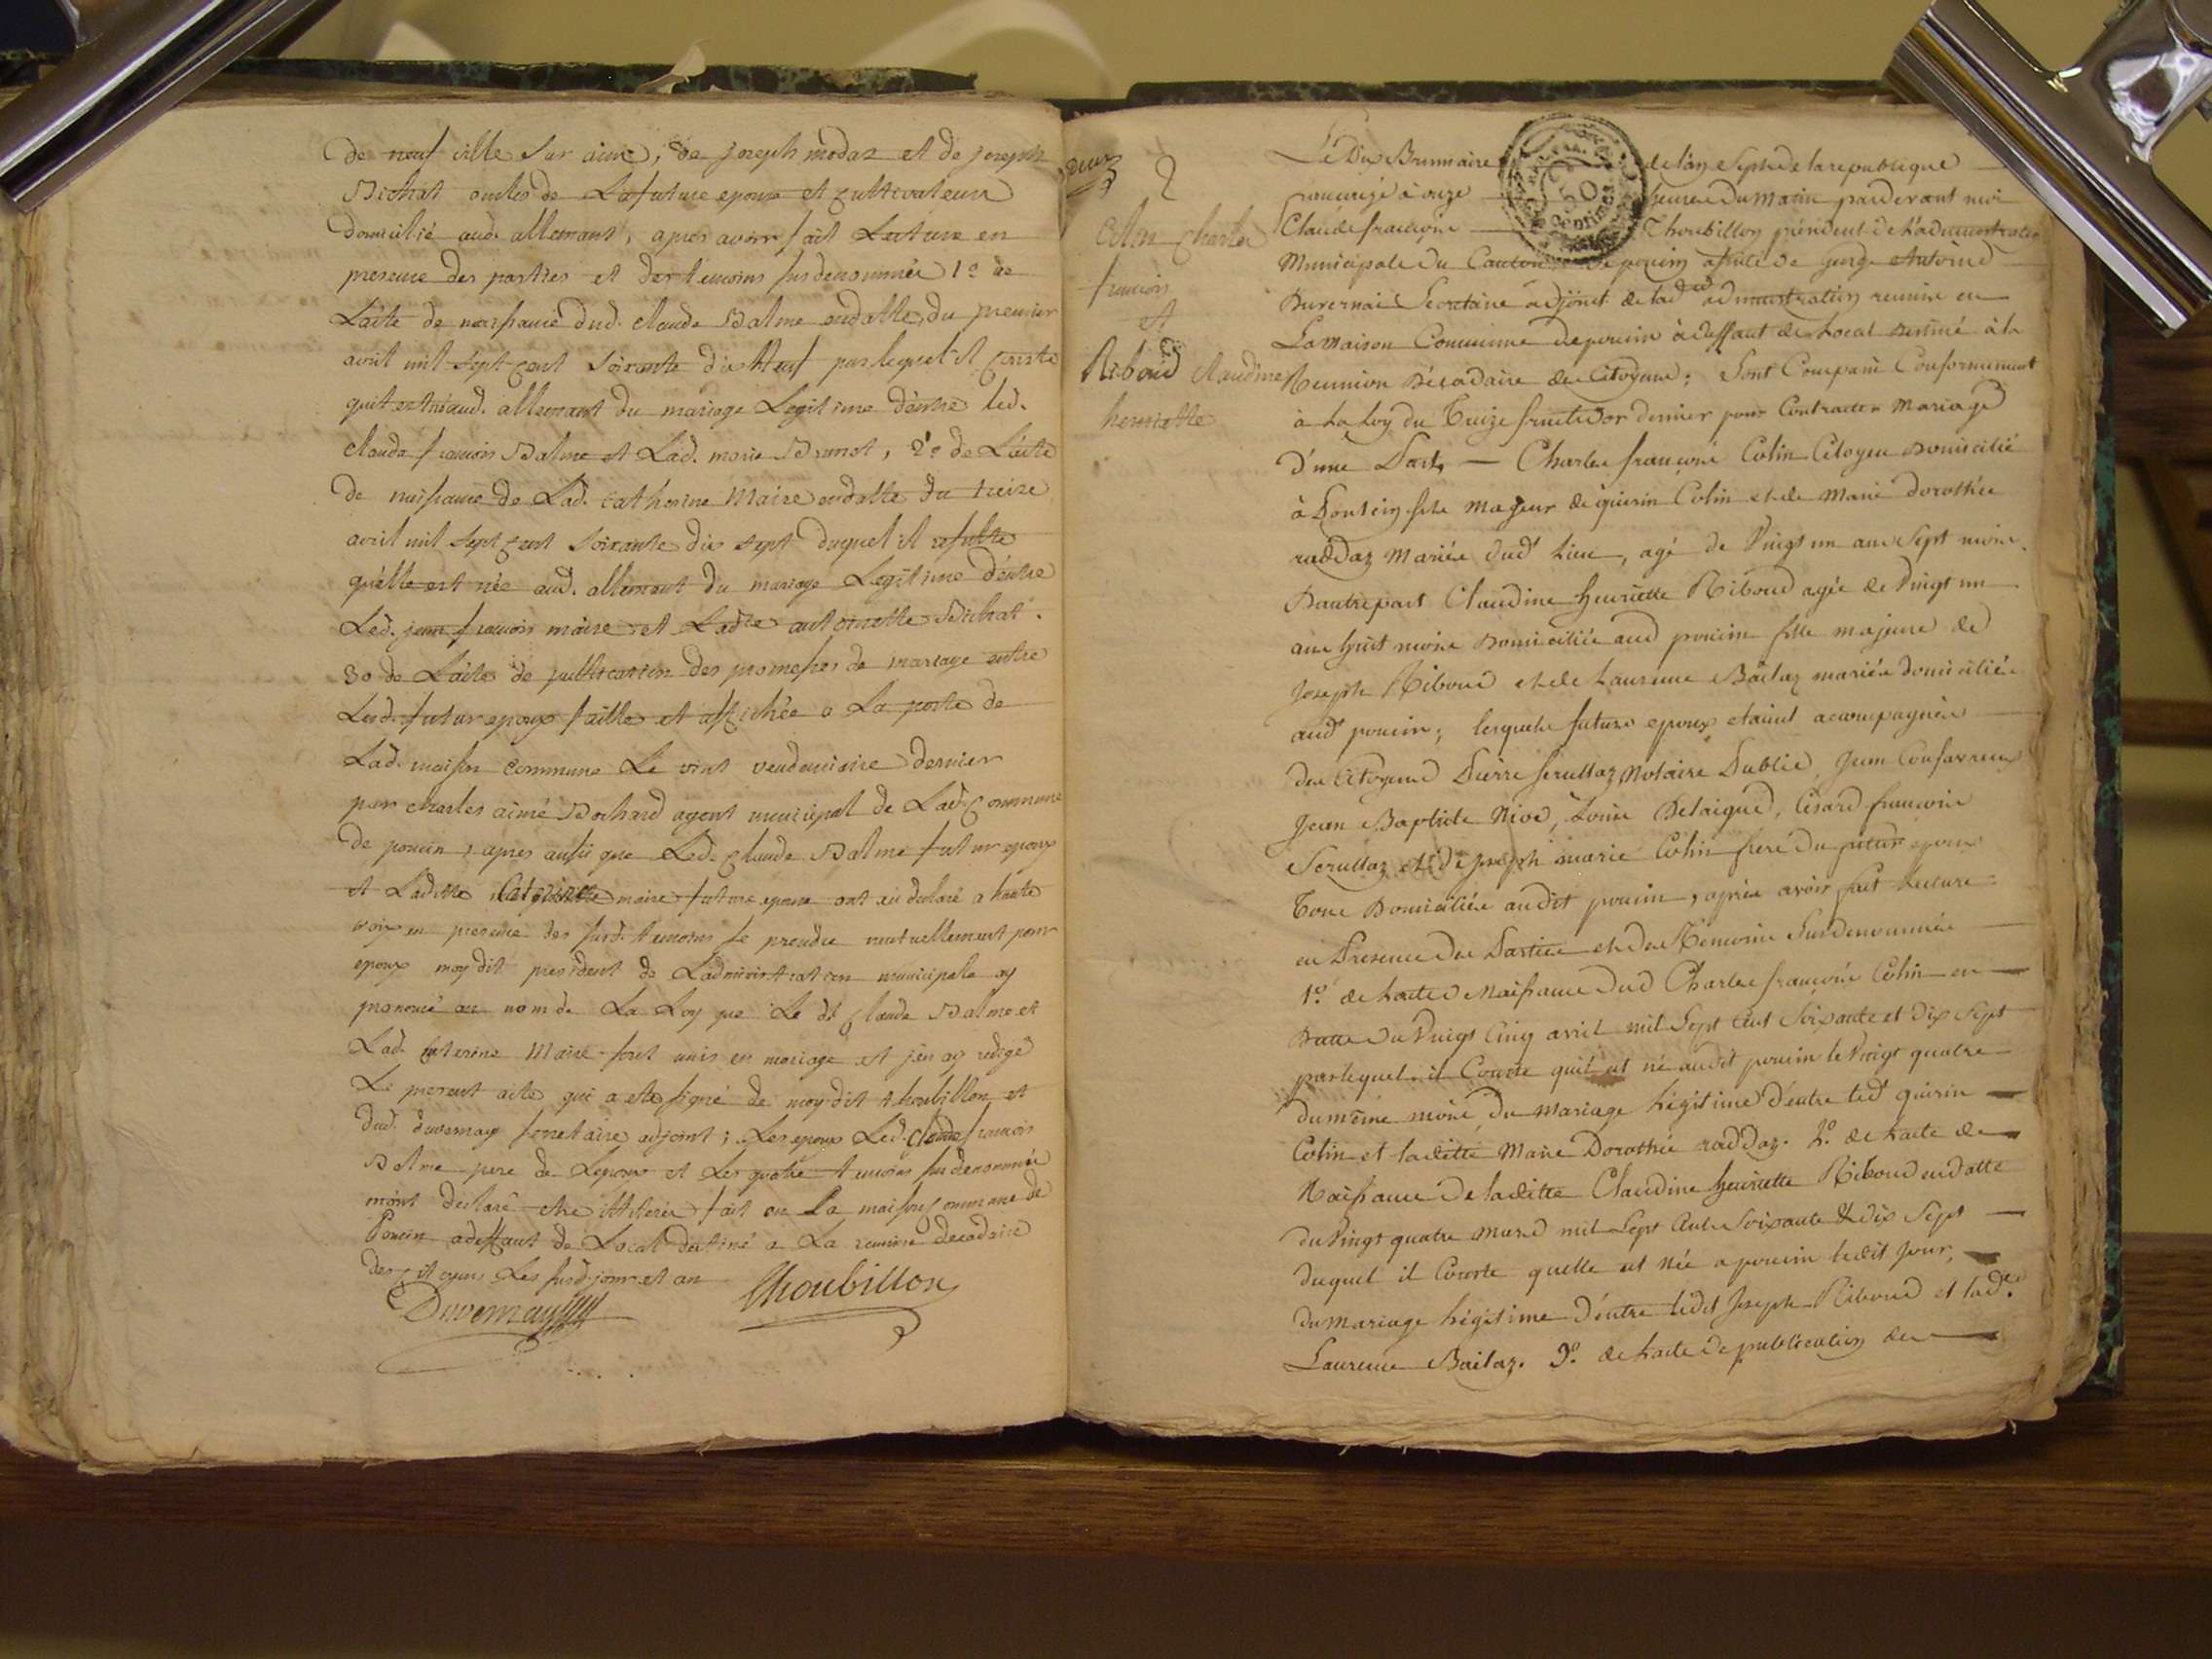 de neuf ville sur ainc, de joseph modaz et de joseph
Bichat oncles de La future epouse et cultivateurs
domicilié aud. allemant, apres avoir fait Lecture en
presence des parties et des temoins susdenommés 1º de
L'acte de naissance dud. claude Balme endatte du premier
avril mil sept cent soixante dix neuf par lequel il conste
quil est né aud. allemant du mariage Legitime d'entre led.
claude francois Balme et Lad. marie Brunet, 2º de L'acte
de naissance de Lad. catherine Maire endatte du treize
avril mil sept cent soixante dix sept duquel il resulte
qu'elle est née aud. allemant du mariage Legitime d'entre
Led. jean francois maire et Ladte antoinette Bichat.
3o de L'acte de publication des promesses de mariage entre
Lesd. futur epoux faitte et affichée a La porte de
Lad. maison commune Le vint vendemiaire dernier
par charles aimé Bochard agent municipal de Lad. Commune
de poncin, apres aussi que Led. Claude Balme futur epoux
et Laditte Caterine maire future epouse ont eu declaré a haute
voix en presence des susd. temoins se prendre mutuellement pour
epoux moy dit president de L'administration municipale ay
prononcé au nom de La Loy que Le dt Claude Balme et
Lad. caterine Maire sont unis en mariage et j'en ay redigé
Le present acte qui a esté signé de moy dit thoubillon et
dud. duvernay secretaire adjoint; Les epoux Led. Claude francois
Balme pere de Lepoux et Les quatre temoins susdenommés
m'ont declaré etre illiterés fait en La maison commune de
Poncin adeffaut de Local destiné a La reunion decadaire
des citoyens Les susd. jour et an
Duvernay Thoubillon
deux
2
Colin Charles
francois
et
Riboud Claudine
henriette
Le Dix Brumaire de l'an Sept de la republique
francaise à onze heures du matin pardevant moi
Claude françois Thoubillon président de L'administration
Municipale du Canton de poncin assisté de george Antoine
Duvernai Secretaire adjoint de lad administration reunies en
La maison Commune de poncin à deffaut de Local destiné à la
Reunion Décadaire des Citoyens; Sont Comparu Conformement
à La Loy du Treize fructidor dernier pour Contracter Mariage
D'une Part, — Charles françois Colin Citoyen Domicilié
à Poncin fils Majeur de quirin Colin et de Marie Dorothée
raddaz Mariés dud Lieu, agé de Vingt un ans Sept mois.
Dautrepart Claudine henriette Riboud agée de Vingt un
ans huit mois Domiciliée aud poncin fille majeure de
Joseph Riboud et de Laurence Bailaz mariés domiciliés
aud poncin; lesquels futurs epoux etaient acompagnés
des Citoyens Pierre Serullaz Notaire Public, Jean Confavreux
Jean Baptiste Nivo, Louis Delaigue, Césard françois
Serullaz et de joseph marie Colin frere du futur epoux
Tous Domiciliés audit poncin, aprés avoir fait Lecture
en Presence des Parties et des Temoins Susdenommés
1º. de Lacte de Naissance dud Charles françois Colin en
Datte du Vingt Cinq avril mil Sept Cent Soixante et dix Sept
par lequel il Conste quil est né audit poncin le Vingt quatre
du même mois, du mariage Légitime d'entre led quirin
Colin et laditte Marie Dorothée raddaz. 2º. de Lacte de
Naissance de laditte Claudine henriette Riboud en datte
du Vingt quatre Mars mil Sept Cent Soixante & dix Sept
duquel il Conste quelle est née a poncin ledit Jour,
du Mariage Légitime d'entre ledit Joseph Riboud et lade.
Laurence Bailaz. 3º. de Lacte de publication des